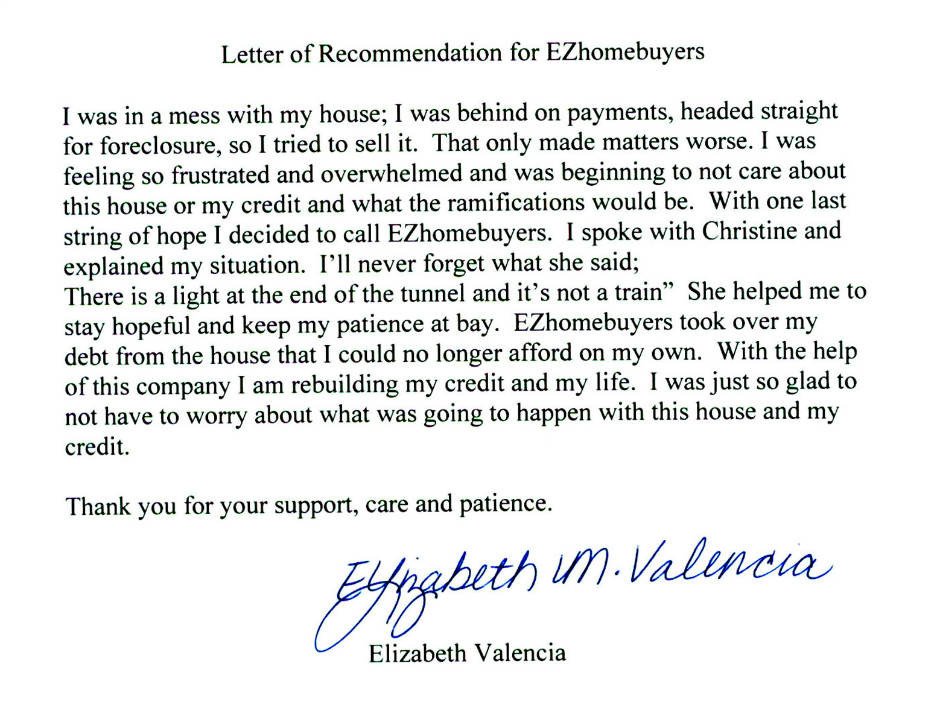 Letter of Recommendation for EZhomebuyers
I was in a mess with my house; I was behind on payments, headed straight
for foreclosure, so I tried to sell it. That only made matters worse. I was
feeling so frustrated and overwhelmed and was beginning to not care about
this house or my credit and what the ramifications would be. With one last
string of hope I decided to call EZhomebuyers. I spoke with Christine and
explained my situation. I'll never forget what she said;
There is a light at the end of the tunnel and it's not a train” She helped me to
stay hopeful and keep my patience at bay. EZhomebuyers took over my
debt from the house that I could no longer afford on my own. With the help
of this company I am rebuilding my credit and my life. I was just so glad to
not have to worry about what was going to happen with this house and my
credit.
Thank you for your support, care and patience.
Elizabeth M. Valencia
Elizabeth Valencia